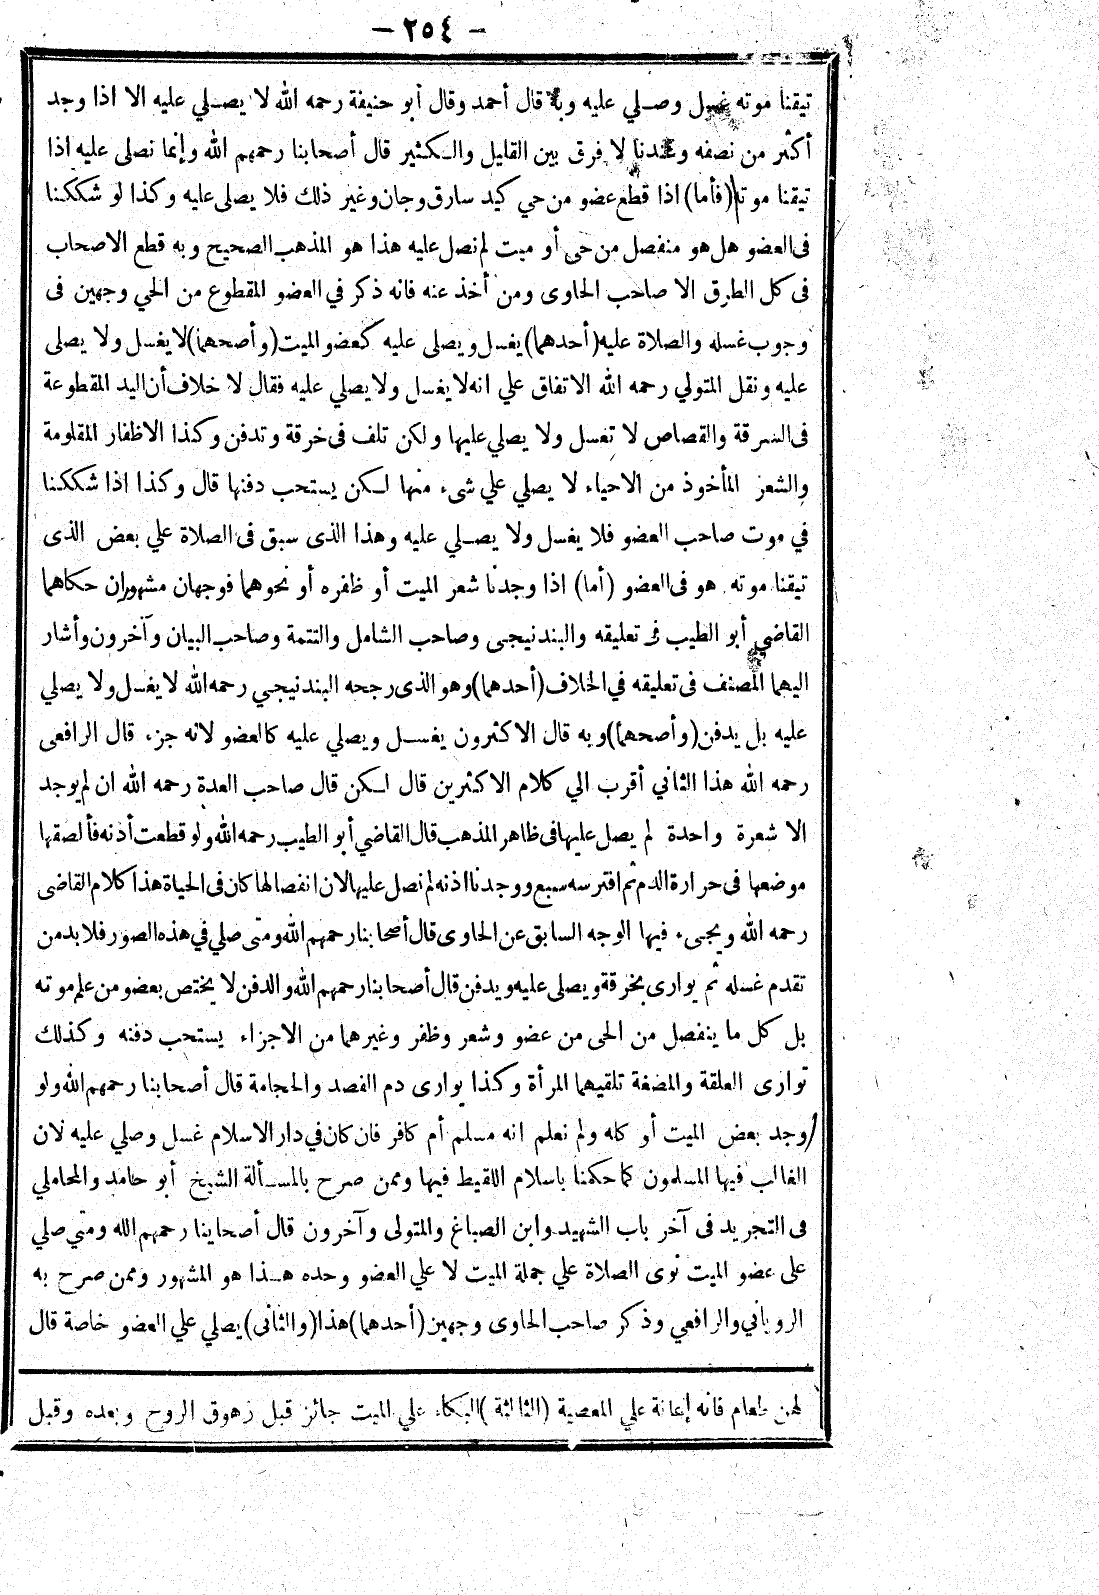 - ٢٥٤ -
تيقنا موته غسل وصلي عليه وبه قال أحمد وقال أبو حنيفة رحمه الله لا يصلي عليه الا اذا وجد
أكثر من نصفه وعندنا لا فرق بين القليل والكثير قال أصحابنا رحمهم الله وإنما نصلى عليه اذا
تيقنا موته (فأما) اذا قطع عضو من حي كيد سارق وجان وغير ذلك فلا يصلى عليه وكذا لو شككنا
فى العضو هل هو منفصل من حى أو ميت لم نصل عليه هذا هو المذهب الصحيح وبه قطع الاصحاب
فى كل الطرق الا صاحب الحاوى ومن أخذ عنه فانه ذكر في العضو المقطوع من الحي وجهين فى
وجوب غسله والصلاة عليه (أحدهما) يغسل ويصلى عليه كعضو الميت (وأصحهما) لا يغسل ولا يصلى
عليه ونقل المتولي رحمه الله الاتفاق علي انه لا يغسل ولا يصلي عليه فقال لا خلاف أن اليد المقطوعة
فى السرقة والقصاص لا تغسل ولا يصلي عليها ولكن تلف فى خرقة وتدفن وكذا الاظفار المقلومة
والشعر المأخوذ من الاحياء لا يصلي علي شىء منها لكن يستحب دفنها قال وكذا اذا شككنا
في موت صاحب العضو فلا يغسل ولا يصلي عليه وهذا الذى سبق فى الصلاة علي بعض الذى
تيقنا موته هو فى العضو (أما) اذا وجدنا شعر الميت أو ظفره أو نحوهما فوجهان مشهوران حكاهما
القاضي أبو الطيب فى تعليقه والبندنيجى وصاحب الشامل والتتمة وصاحب البيان وآخرون وأشار
اليهما المصنف فى تعليقه في الخلاف (أحدهما) وهو الذى رجحه البندنيجي رحمه الله لا يغسل ولا يصلي
عليه بل يدفن (وأصحهما) وبه قال الاكثرون يغسل ويصلي عليه كالعضو لانه جزء قال الرافعى
رحمه الله هذا الثاني أقرب الي كلام الاكثرين قال لكن قال صاحب العدة رحمه الله ان لم يوجد
الا شعرة واحدة لم يصل عليها فى ظاهر المذهب قال القاضي أبو الطيب رحمه الله ولو قطعت أذنه فألصقها
موضعها فى حرارة الدم ثم افترسه سبع ووجدنا اذنه لم نصل عليها لان انفصالها كان فى الحياة هذا كلام القاضى
رحمه الله ويجىء فيها الوجه السابق عن الحاوى قال أصحابنا رحمهم الله ومتى صلي في هذه الصور فلا بد من
تقدم غسله ثم يوارى بخرقة ويصلى عليه ويدفن قال أصحابنا رحمهم الله والدفن لا يختص بعضو من علم موته
بل كل ما ينفصل من الحى من عضو وشعر وظفر وغيرهما من الاجزاء يستحب دفنه وكذلك
توارى العلقة والمضغة تلقيهما المرأة وكذا يوارى دم الفصد والحجامة قال أصحابنا رحمهم الله ولو
وجد بعض الميت أو كله ولم نعلم انه مسلم أم كافر فان كان في دار الاسلام غسل وصلي عليه لان
الغالب فيها المسلمون كما حكمنا باسلام اللقيط فيها وممن صرح بالمسألة الشيخ أبو حامد والمحاملي
فى التجريد فى آخر باب الشهيد وابن الصباغ والمتولى وآخرون قال أصحابنا رحمهم الله ومتي صلي
على عضو الميت نوى الصلاة علي جملة الميت لا علي العضو وحده هذا هو المشهور وممن صرح به
الروياني والرافعي وذكر صاحب الحاوى وجهين (أحدهما) هذا (والثانى) يصلي علي العضو خاصة قال
لهن طعام فانه إعانة علي المعصية (الثالثة) البكاء علي الميت جائز قبل زهوق الروح وبعده وقبل